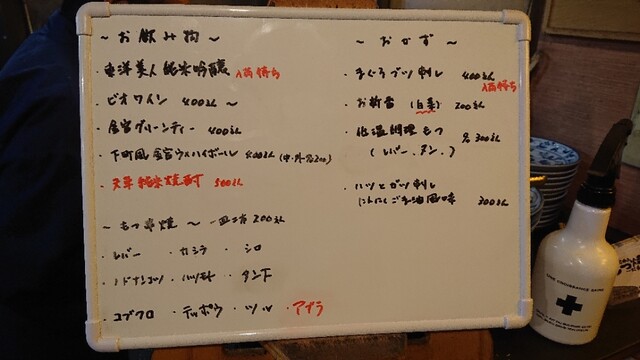 ～お飲み物～
・東洋美人 純米吟醸 入荷待ち
・ビオワイン 400えん～
・金宮グリーンティー 400えん
・下町風 金宮ウメハイボール 400えん (中・外 各200)
・天草 純米焼酎 500えん
～もつ串焼～ 一皿二本 200えん
・レバー ・カシラ ・シロ
・ノドナンコツ ・ハツモト ・タン下
・コブクロ ・テッポウ ・ツル ・アブラ
～おかず～
・まぐろブツ刺し 400えん
入荷待ち
・お新香 (白菜) 200えん
・低温調理もつ 各300えん
(レバー、タン、)
・ハツとガツ刺し
にんにくごま油風味 300えん